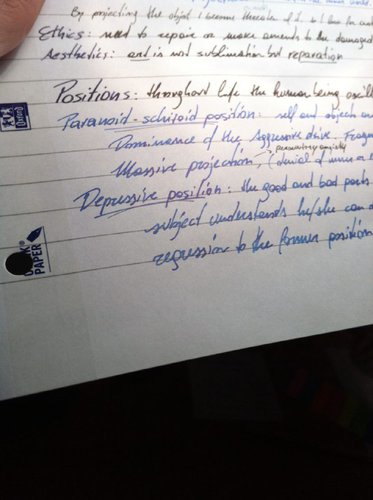 By projecting the object I become
Ethics: need to repair or make amends to the damaged
Aesthetics: end is not sublimation but reparation
Positions: throughout life the human being oscill
Paranoid-schizoid position: self and objects are
Dominance of the Aggressive drive. Fragm
persecutory anxiety
Massive projection, (denial of inner a
Depressive position: the good and bad parts
subject understands he/she can d
regression to the former position
PAPER